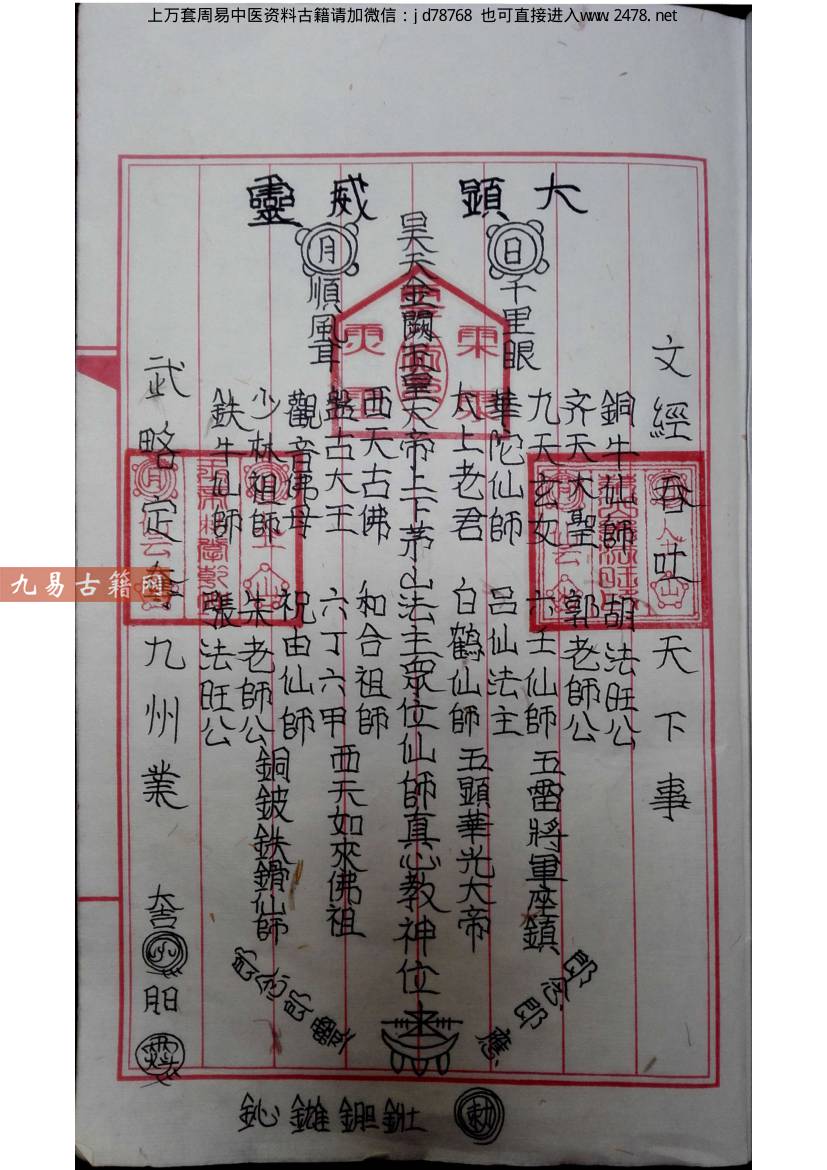 上万套周易中医资料古籍请加微信：jd78768 也可直接进入www.2478.net
大顯威靈
文經吞吐天下事
銅牛仙師 胡法旺公
齐天大聖 郭老師公
日 千里眼
九天玄女 六壬仙師 五雷將軍座鎮
華陀仙師 呂仙法主
太上老君 白鶴仙師 五顯華光大帝
昊天金闕玉皇大帝上下茅山法主眾位仙師真心教神位
西天古佛 和合祖師
月 順風耳
盤古大王 六丁六甲 西天如來佛祖
觀音佛母 祝由仙師
少林祖師 朱老師公 銅鈸鉄鎖仙師
鉄牛仙師 張法旺公
武略定奪九州業
勅
九易古籍网